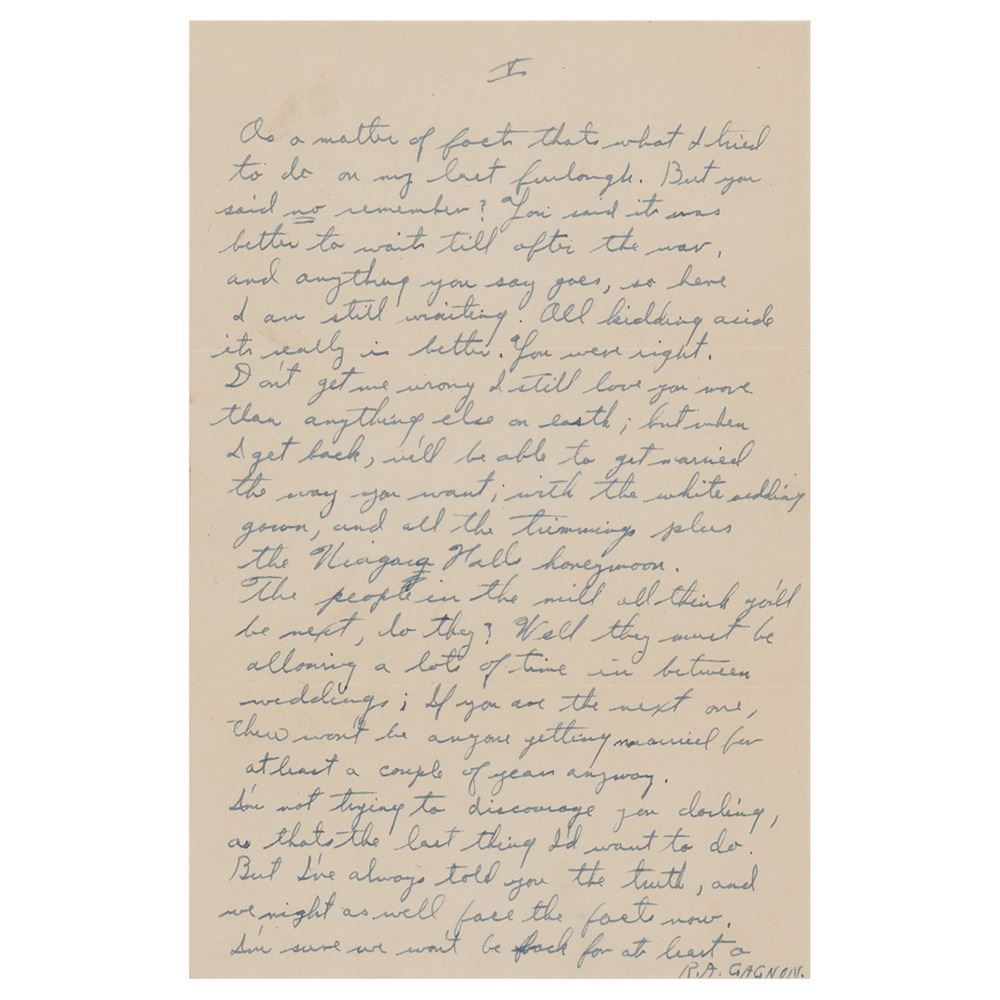 V
As a matter of fact thats what I tried
to do on my last furlough. But you
said no remember? You said it was
better to wait till after the war,
and anything you say goes, so here
I am still waiting. All kidding aside
it really is better. You were right.
Don't get me wrong I still love you more
than anything else on earth; but when
I get back, we'll be able to get married
the way you want; with the white wedding
gown, and all the trimmings plus
the Niagara Falls honeymoon.
The people in the mill all think you'll
be next, do they? Well they must be
allowing a lots of time in between
weddings; If you are the next one,
there won't be anyone getting married for
at least a couple of years anyway.
I'm not trying to discourage you darling,
as thats the last thing I'd want to do.
But I've always told you the truth, and
we might as well face the facts now.
I'm sure we won't be back for at least a
R.A. GAGNON.